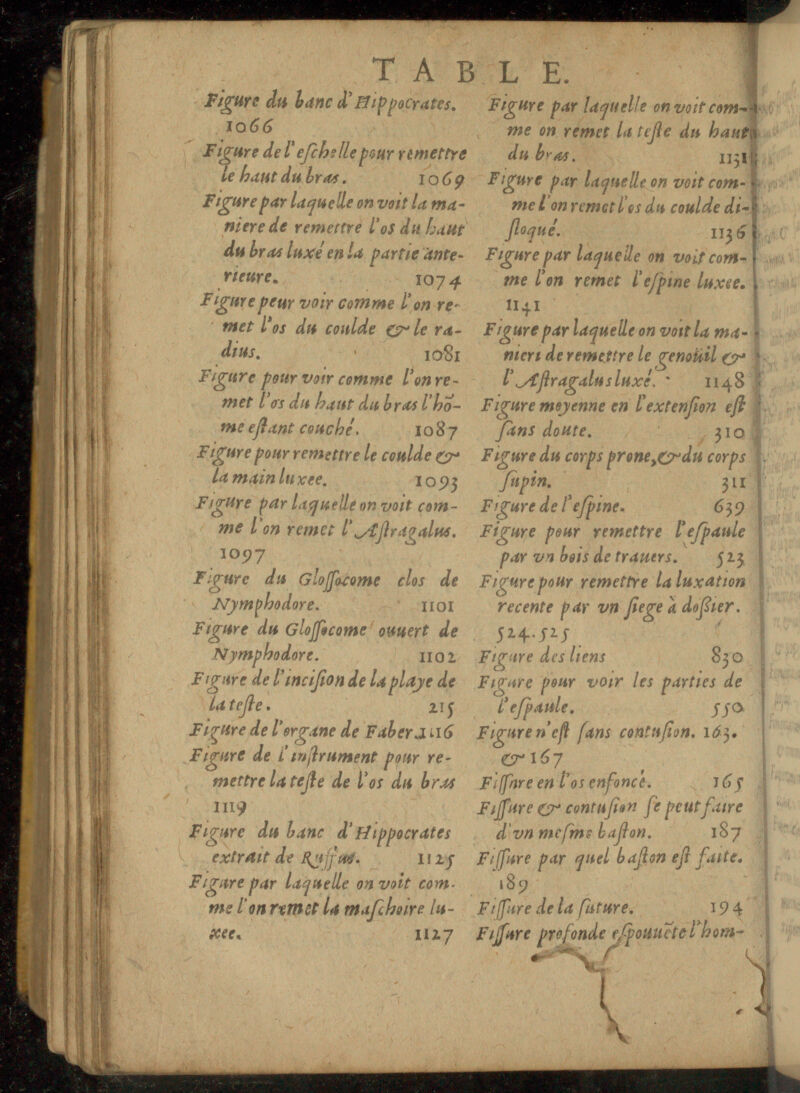 TABLE.
Figure du banc d'Hippocrates.
1066
Figure de l'eschelle pour remettre
le haut du bras. 1069
Figure par laquelle on voit la ma-
niere de remettre l'os du haut
du bras luxé en la partie ante-
rieure. 1074
Figure peur voir comme l'on re-
met l'os du coulde & le ra-
dius. 1081
Figure pour voir comme l'on re-
met l'os du haut du bras l'hō-
me estant couché. 1087
Figure pour remettre le coulde &
la main luxee. 1093
Figure par laquelle on voit com-
me l'on remet l'Astragalus.
1097
Figure du Glossocome clos de
Nymphodore. 1101
Figure du Glossocome ouuert de
Nymphodore. 1102
Figure de l'incision de la playe de
la teste. 215
Figure de l'organe de Faber. 1116
Figure de l'instrument pour re-
mettre la teste de l'os du bras
1119
Figure du banc d'Hippocrates
extrait de Ruffus. 1125
Figure par laquelle on voit com-
me l'on remet la maschoire lu-
xee. 1127
Figure par laquelle on voit com-
me on remet la teste du haut
du bras. 1131
Figure par laquelle on voit com-
me l'on remet l'os du coulde di-
sloqué. 1136
Figure par laquelle on voit com-
me l'on remet l'espine luxee.
1141
Figure par laquelle on voit la ma-
niere de remettre le genoüil &
l'Astragalus luxé. 1148
Figure moyenne en l'extension est
sans doute. 310
Figure du corps prone, & du corps
supin. 311
Figure de l'espine. 639
Figure pour remettre l'espaule
par vn bois de trauers. 523
Figure pour remettre la luxation
recente par vn siege à dossier.
524. 525
Figure des liens 830
Figure pour voir les parties de
l'espaule. 550
Figure n'est sans contusion. 163.
& 167
Fissure en l'os enfoncé. 165
Fissure & contusion se peut faire
d'vn mesme baston. 187
Fissure par quel baston est faite.
189
Fissure de la suture. 194
Fissure profonde espouuēte l'hom-